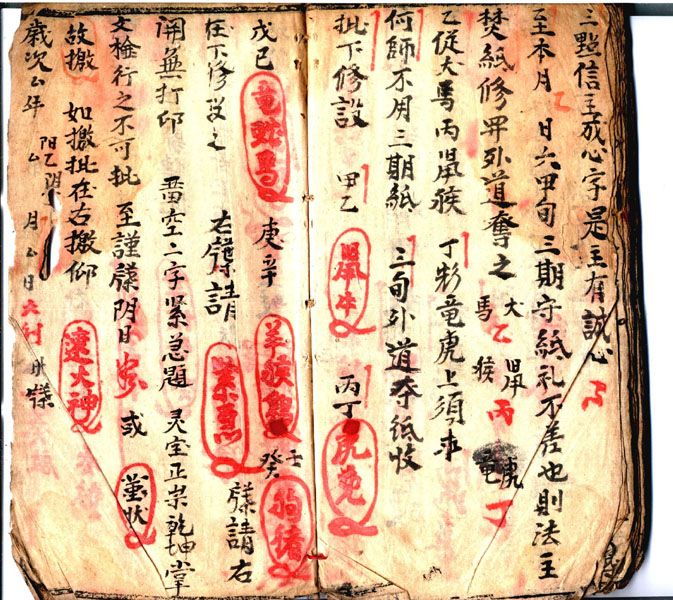 三點信主成心字是主有誠心
至本月 乙 日六甲旬三期守紙礼不差也則法主
焚紙修 外道奪之 犬馬 乙 鼠猴 丙 虎竜 丁
乙從犬馬丙鼠猴 丁 竜虎上須求
何師不用三期紙 三旬外道夺纸收
批下修設 甲乙 鼠牛 丙丁 虎兔
戊己 竜蛇馬 庚辛 羊猴 壬癸 狗猪
在下修设之 右牒請 牒請右
用無打印 空二字紧急題 灵宝正宗乾坤掌
文檢行之不可批 至謹牒阴日 或 状
故撽 如撽批在右撽仰 大神
歳次厶年 月厶日 牒